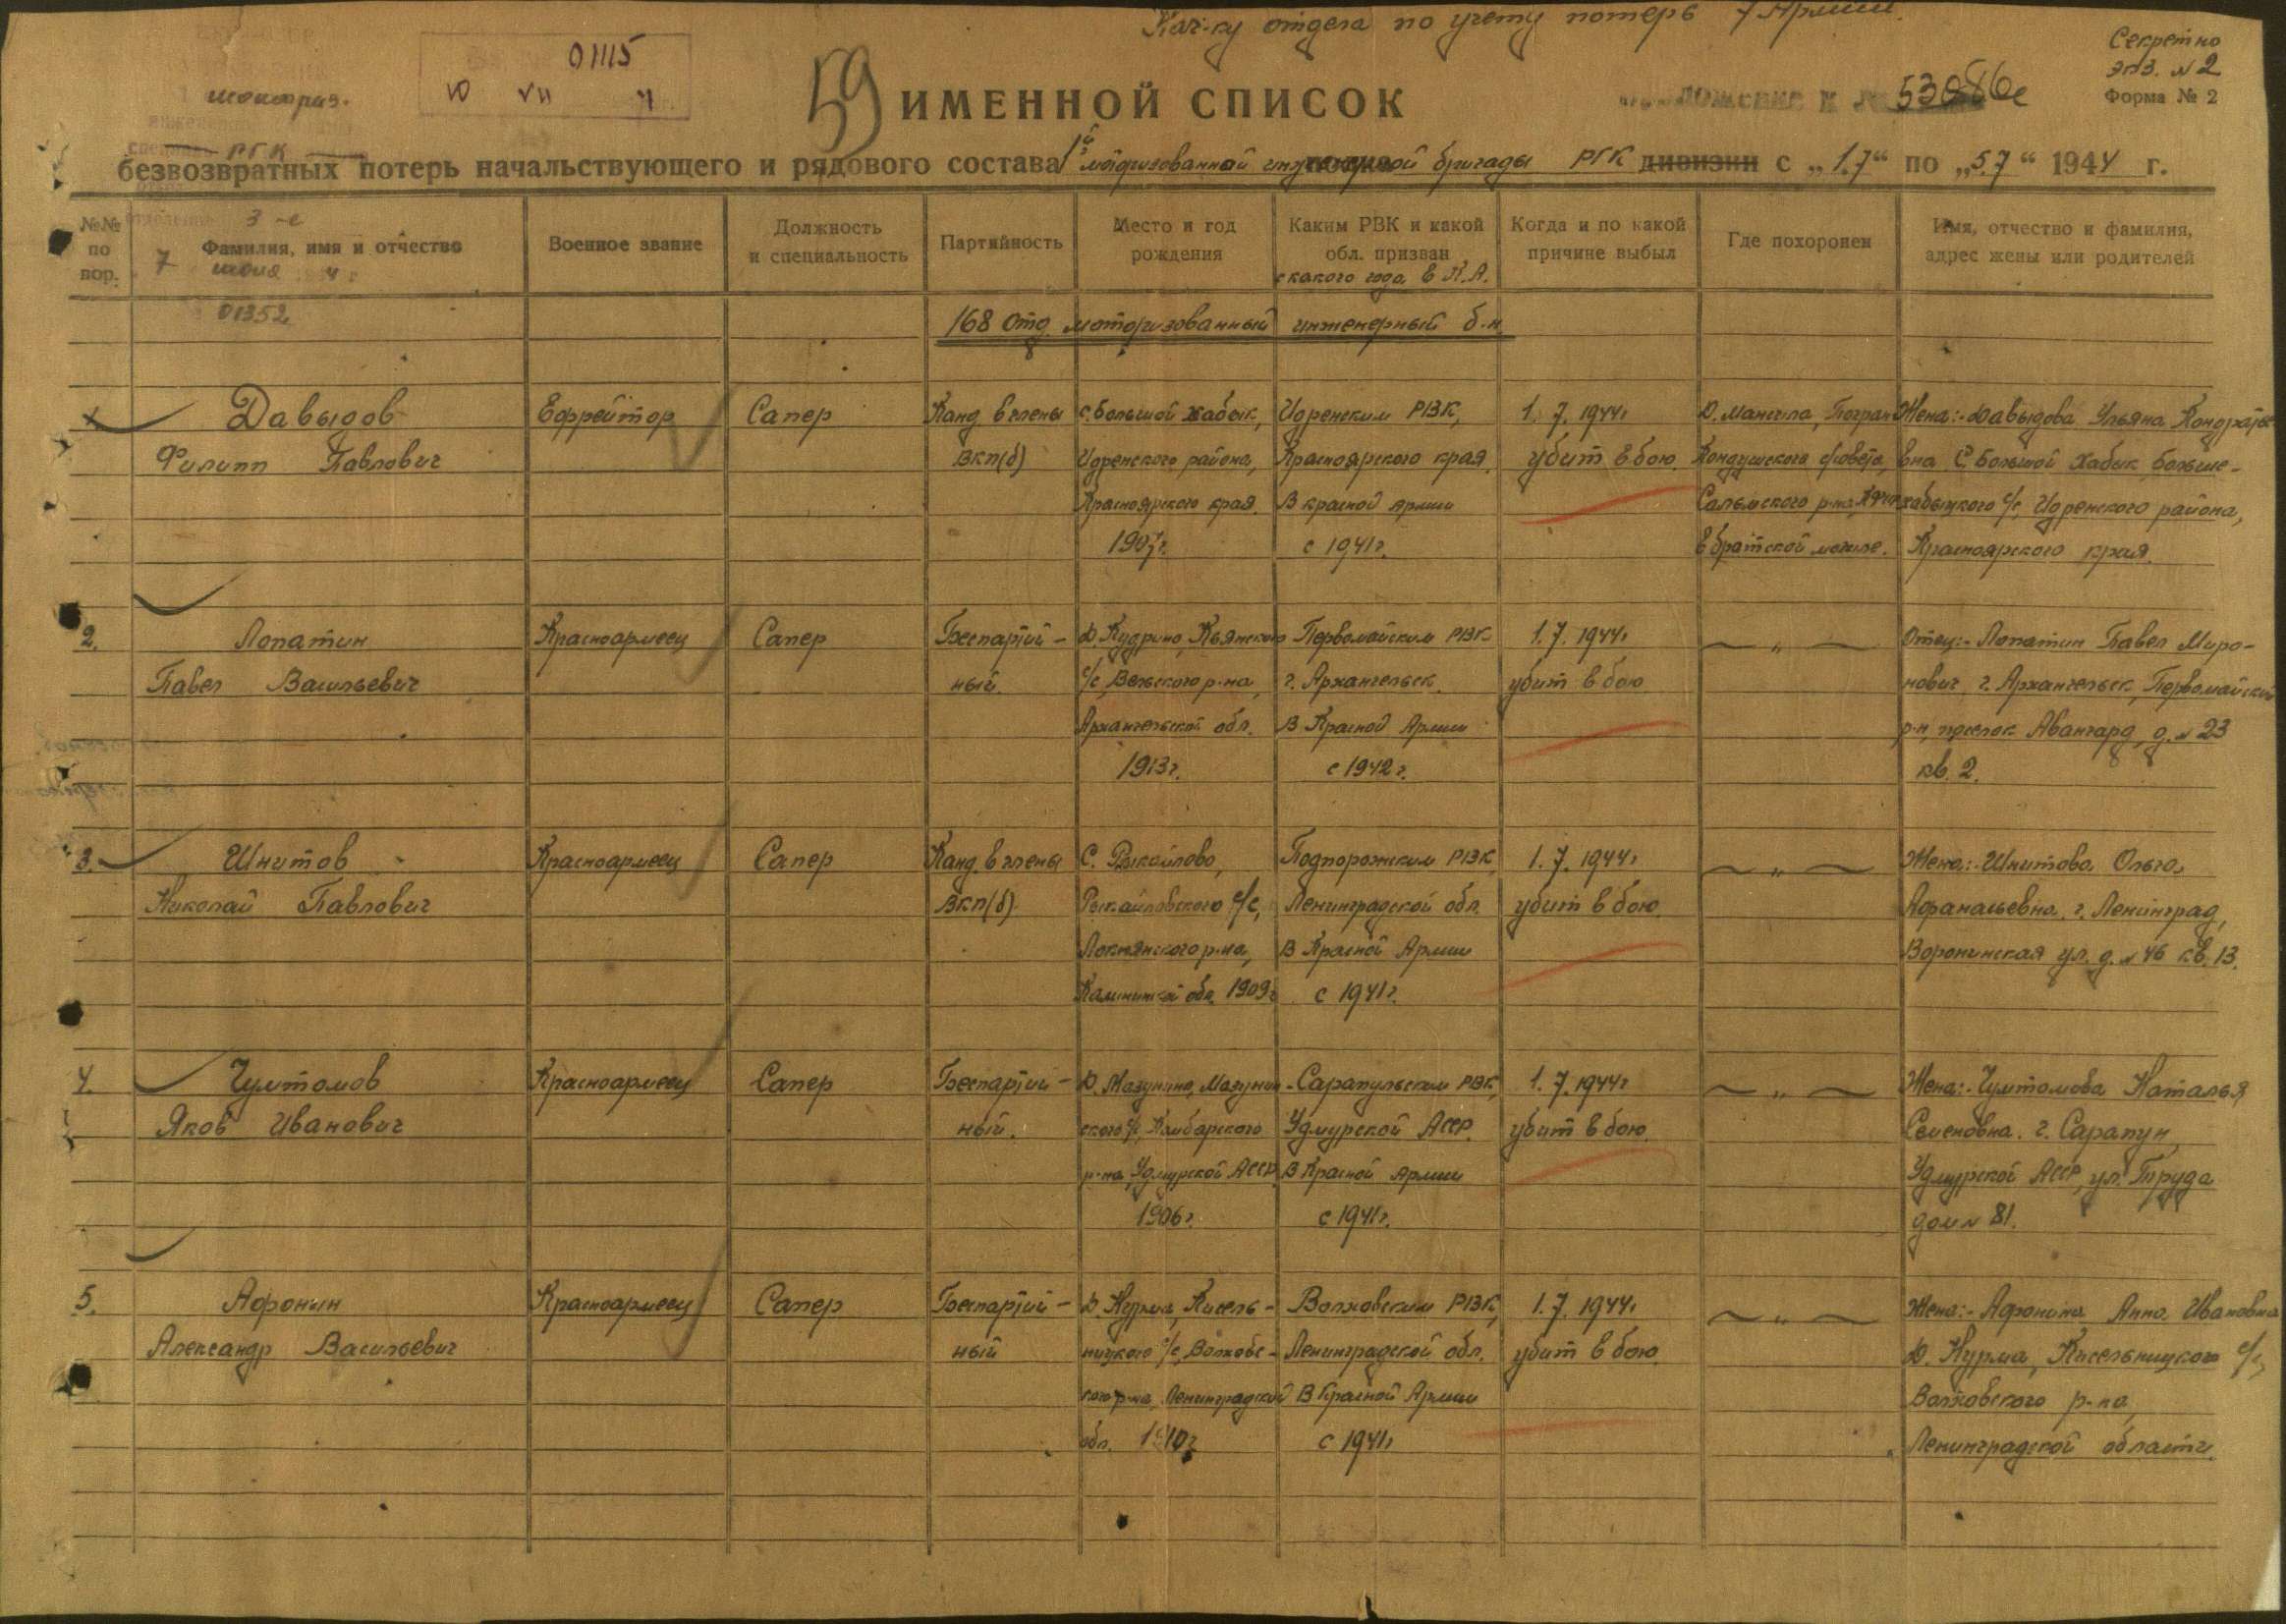 Нач-ку отдела по учету потерь 7 Армии.
Секретно
экз. № 2
Форма № 2
01115
10 VII 4
моториз.
РГК
59
ИМЕННОЙ СПИСОК
53086с
безвозвратных потерь начальствующего и рядового состава 1й моторизованной инженерной бригады РГК дивизии с „1.7“ по „5.7“ 1944 г.
3-е
7 июля 4 г
01352
№№ по пор.
Фамилия, имя и отчество
Военное звание
Должность и специальность
Партийность
Место и год рождения
Каким РВК и какой обл. призван
с какого года в К.А.
Когда и по какой причине выбыл
Где похоронен
Имя, отчество и фамилия, адрес жены или родителей
168 отд. моторизованный инженерный б-н
1 Давыдов Ефрейтор Сапер Канд. в члены с. Большой Хабык, Идренским РВК, 1.7.1944г Жена:- Давыдова Ульяна Кондратье-
Филипп Павлович ВКП(б) Идренского района, Красноярского края. убит в бою. Кондушского с/совета, вна С. Большой Хабык, Больше-
Красноярского края. В красной армии хабыкского с/с, Идренского района,
1907г. с 1941г. в братской могиле. Красноярского края.
2. Лопатин Красноармеец Сапер Беспартий- Д. Кудрино, Первомайским РВК 1.7.1944г — „ — Отец:- Лопатин Павел Миро-
Павел Васильевич ный с/с, Вельского р-на, г. Архангельск. убит в бою нович, г. Архангельск, Первомайский
Архангельской обл. В Красной Армии р-н, поселок Авангард, д. № 23
1913г. с 1942г. кв. 2.
3. Шнитов Красноармеец Сапер Канд. в члены С. Рыкайлово, Подпорожским РВК 1.7.1944г — „ — Жена:- Шнитова Ольга
Николай Павлович ВКП(б). Рыкайловского с/с, Ленинградской обл. убит в бою. Афанасьевна. г. Ленинград,
Локнянского р-на, В Красной Армии Воронинская ул. д. № 46 кв. 13.
Калининской обл. 1909г с 1941г.
4. Чумтомов Красноармеец Сапер Беспартий- Д. Мазунино, Мазунин- Сарапульским РВК, 1.7.1944г — „ — Жена:- Чумтомова Наталья
Яков Иванович ный. ского с/с, Камбарского Удмурской АССР. убит в бою. Семеновна. г. Сарапул,
р-на, Удмурской АССР. В Красной Армии Удмурской АССР, ул. Труда
1906г. с 1941г. дом № 81.
5. Афонин Красноармеец Сапер Беспартий- Д. Нурма, Кисель- Волховским РВК, 1.7.1944г — „ — Жена:- Афонина Анна Ивановна
Александр Васильевич ный ницкого с/с, Волховс- Ленинградской обл. убит в бою. Д. Нурма, Кисельницкого с/с,
кого р-на, Ленинградской В Красной Армии Волховского р-на,
обл. 1910г с 1941г Ленинградской области.